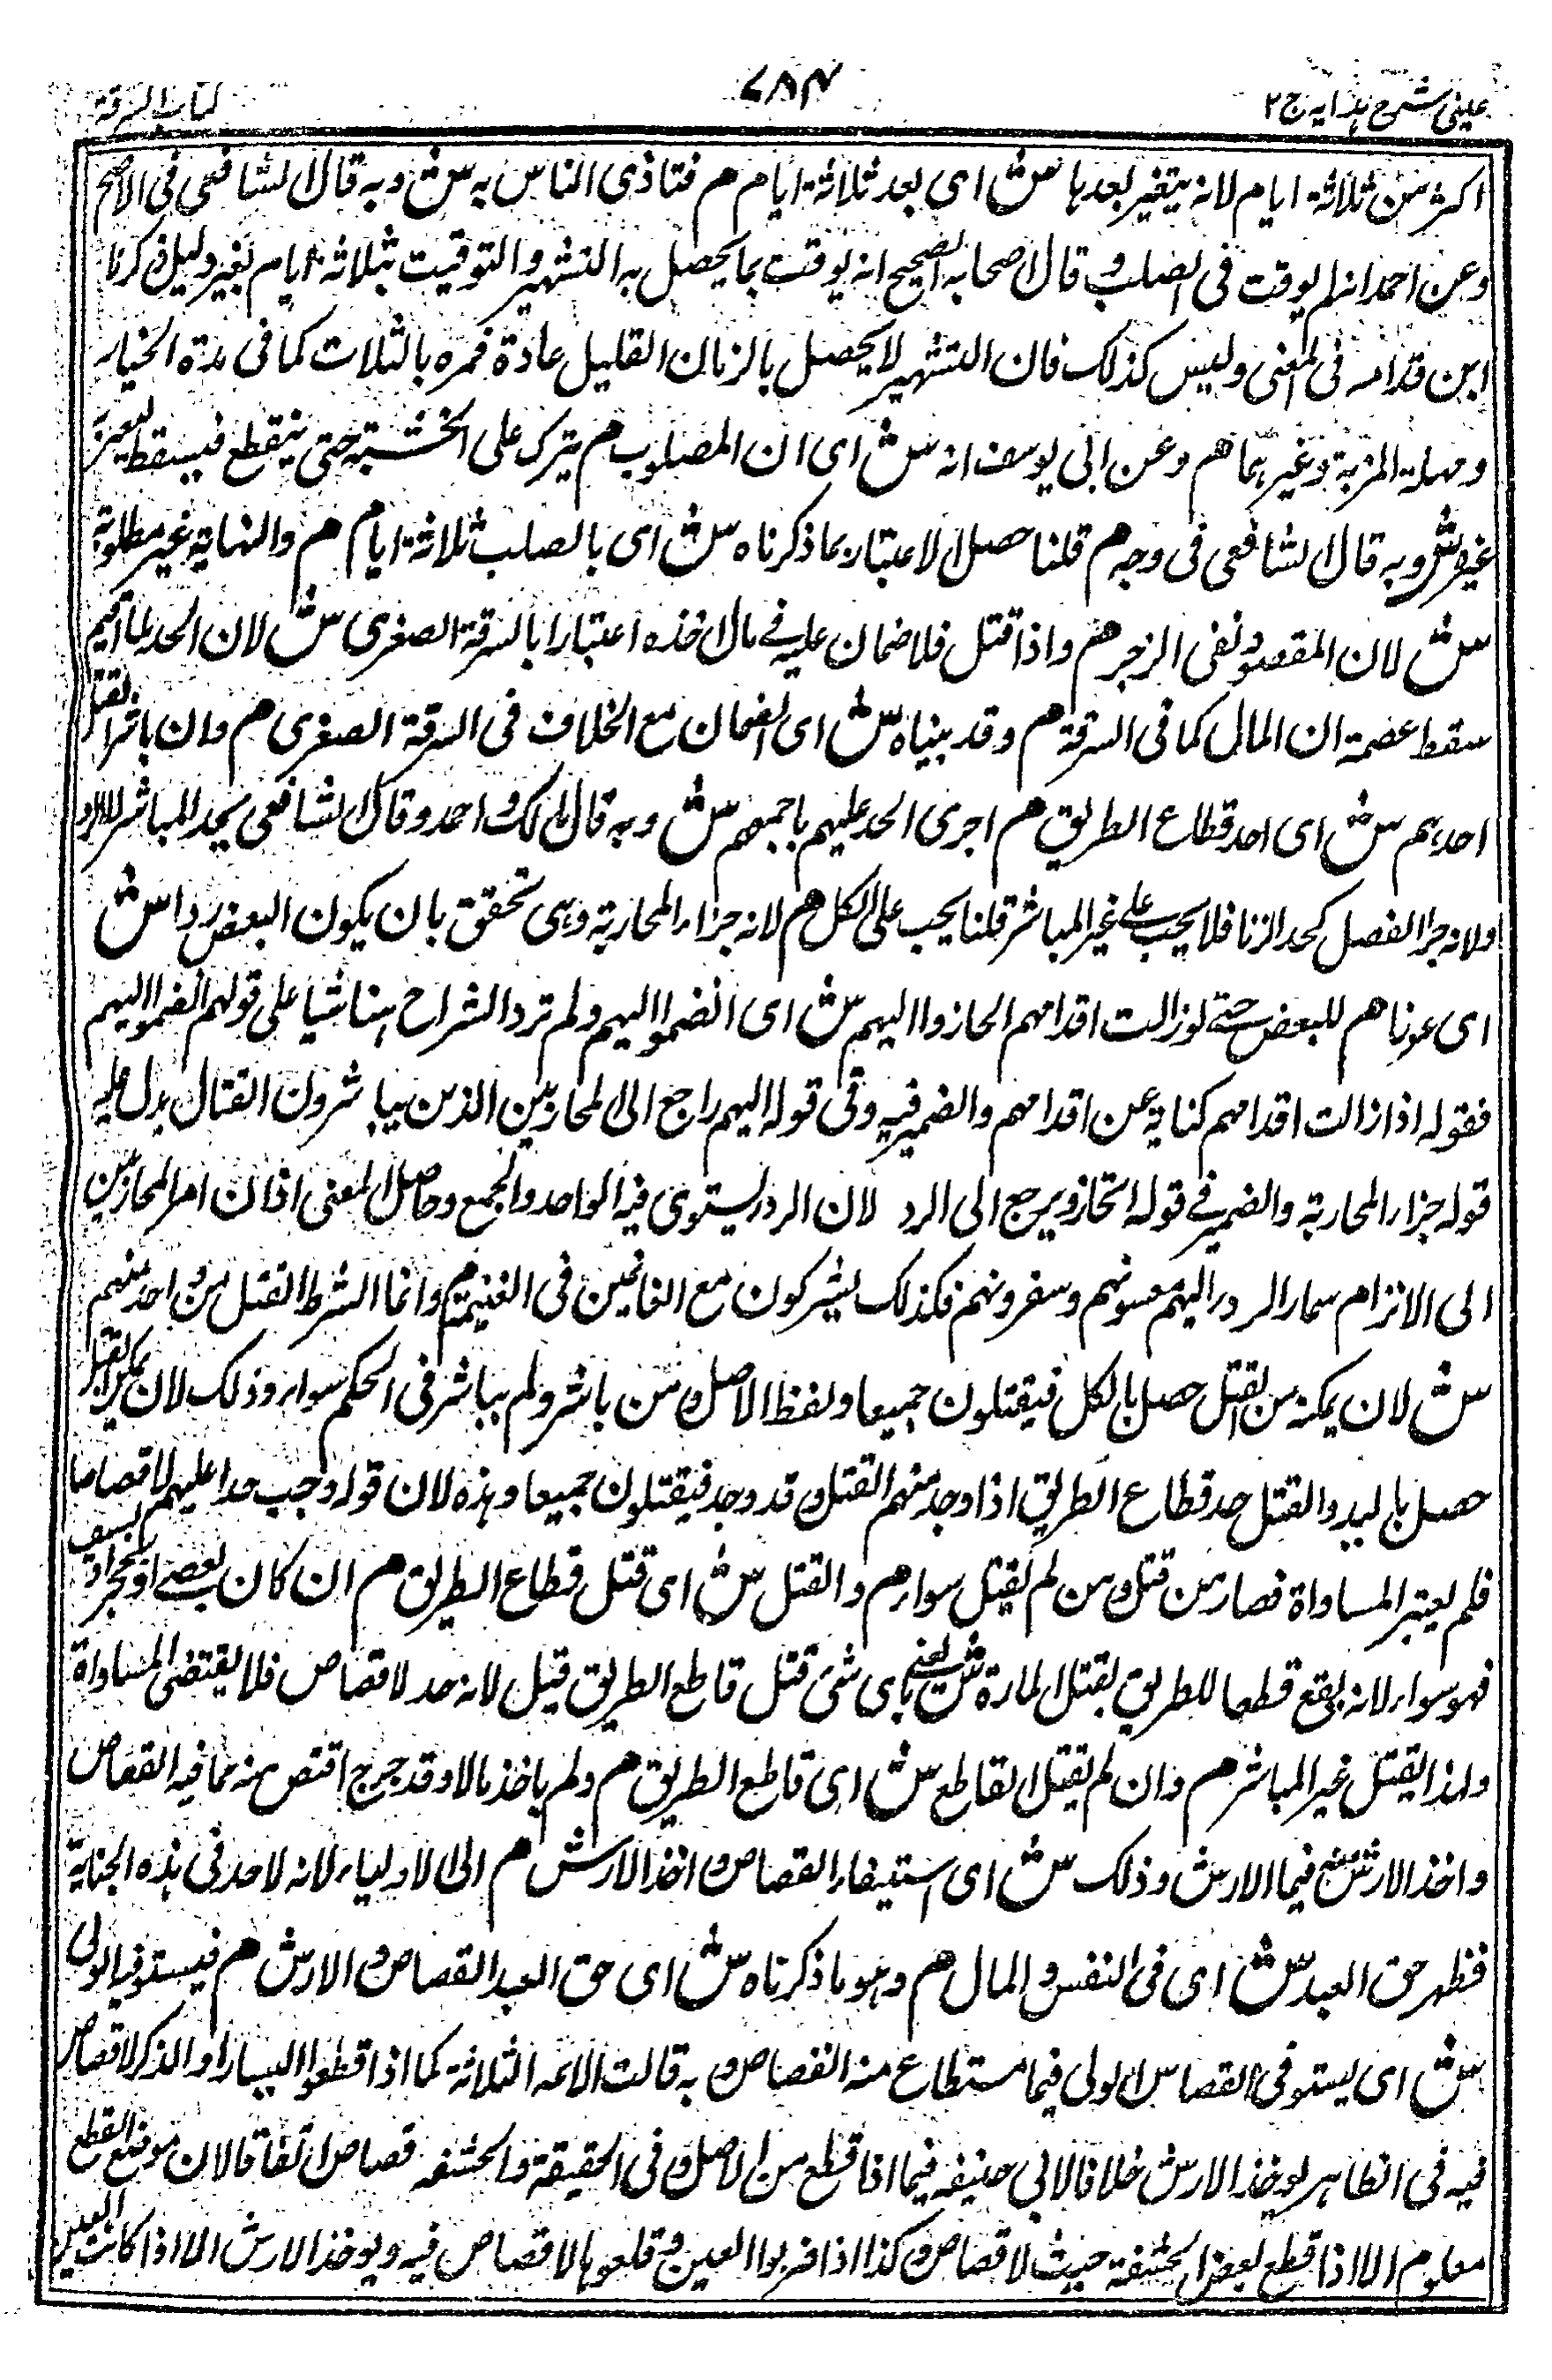 عینی شرح ہدایہ ج ٢
٧٨٤
کتاب السرقة
اکثر من ثلاثة ایام لانه یتغیر بعدہا ش ای بعد ثلاثة ایام م فتاذی الناس به ش وبه قال الشافعی فی الاصح
وعن احمد انه لم یوقت فی الصلب وقال اصحابه الصحیح انه یوقت بما یحصل به التشهیر والتوقیت بثلاثة ایام بغیر دلیل ذکرنا
ابن قدامه فی المغنی ولیس کذلک فان التشهیر لا یحصل بالزمان القلیل عادة فمره بالثلاث کما فی مدة الخیار
ومهلة المرتد وغیرہما م وعن ابی یوسف انه ش ای ان المصلوب م یترک علی الخشبة حتی ینقطع فیسقط لیعتبر
غیره ش وبه قال الشافعی فی وجه م قلنا حصل الاعتبار بما ذکرناه ش ای بالصلب ثلاثة ایام م والنهایة غیر مطلوبة
ش لان المقصود نفی الزجر م واذا قتل فلا ضمان علیه فی مال اخذه اعتبارا بالسرقة الصغری ش لان الحد لما اقیم
سقط عصمة ان المال کما فی السرقة م وقد بیناه ش ای الضمان مع الخلاف فی السرقة الصغری م وان باشر القتل
احدہم ش ای احد قطاع الطریق م اجری الحد علیهم باجمعهم ش وبه قال مالک واحمد وقال الشافعی یحد المباشر لا الردء
ولانه جزاء الفصل کحد الزنا فلا یجب علی غیر المباشر قلنا یجب علی الکل م لانه جزاء المحاربة وہی تحقق بان یکون البعض ردا ش
ای عونا م للبعض حتی لو زالت اقدامهم انحازوا الیهم ش ای انضموا الیهم ولم ترد الشراح ہنا شیا علی قولهم انضموا الیهم
فقوله اذا زالت اقدامهم کنایة عن اقدامهم والضمیر فیه وفی قوله الیهم راجع الی المحاربین الذین یباشرون القتال یدل علیه
قوله جزاء المحاربة والضمیر فی قوله انحازو یرجع الی الرد لان الرد یستوی فیه الواحد والجمع وحاصل المعنی اذا ن امر المحاربین
الی الانزام سمار الرد الیهم وسفرونهم فکذلک یشترکون مع الغانمین فی الغنیمة م وانما الشرط القتل من واحد منهم
ش لان یمکنه من القتل حصل بالکل فیقتلون جمیعا ولفظ الاصل ومن باشر ولم یباشر فی الحکم سواء وذلک لان تمکن القتل
حصل بالید والقتل حد قطاع الطریق اذا وجد منهم القتل وقد وجد فیقتلون جمیعا وہذه لان قوله وجب حدا علیهم لا قصاصا
فلم یعتبر المساواة فصار من قتل ومن لم یقتل سواء م والقتل ش ای قتل قطاع الطریق م ان کان بعصی او بحجر او بسیف
فهو سواء لانه یقع قطعا للطریق بقتل المارة ش یعنی بای شئ قتل قاطع الطریق قیل لانه حد لا قصاص فلا یقتضی المساواة
ولهذا یقتل غیر المباشر م وان لم یقتل القاطع ش ای قاطع الطریق م ولم یاخذ مالا وقد جرح اقتص منه مما فیه القصاص
واخذ الارش منه فیما الارش وذلک ش ای استیفاء القصاص و اخذ الارش م الی الاولیاء لانه لا حد فی ہذه الجنایة
فظهر حق العبد ش ای فی النفس والمال م وہو ما ذکرناه ش ای حق العبد القصاص والارش م فیستوفیه الولی
ش ای یستوفی القصاص الولی فیما مستطاع منه القصاص وبه قالت الائمه الثلاثة کما اذا قطعوا الیسار او الذکر لا قصاص
فیه فی الظاہر یوخذ الارش خلافا لابی حنیفه فیما اذا قطع من الاصل وفی الحقیقة والحشفه قصاص اتفاقا لان موضع القطع
معلوم الا اذا قطع بعض الحشفة حیث لا قصاص وکذا اذا ضربوا العین وقلعوہا لا قصاص فیه ویوخذ الارش الا اذا کانت العین